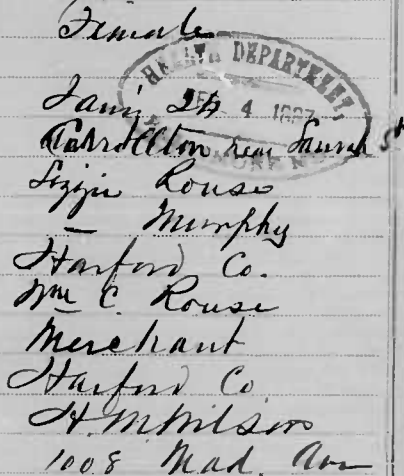 Female
HEALTH DEPARTMENT,
4 1887
Jany 24
Carrollton near Laurens St
Lizzie Rouse
— Murphy
Harford Co.
Wm C. Rouse
Merchant
Harford Co
H. M. Wilson
1008 Mad. Ave